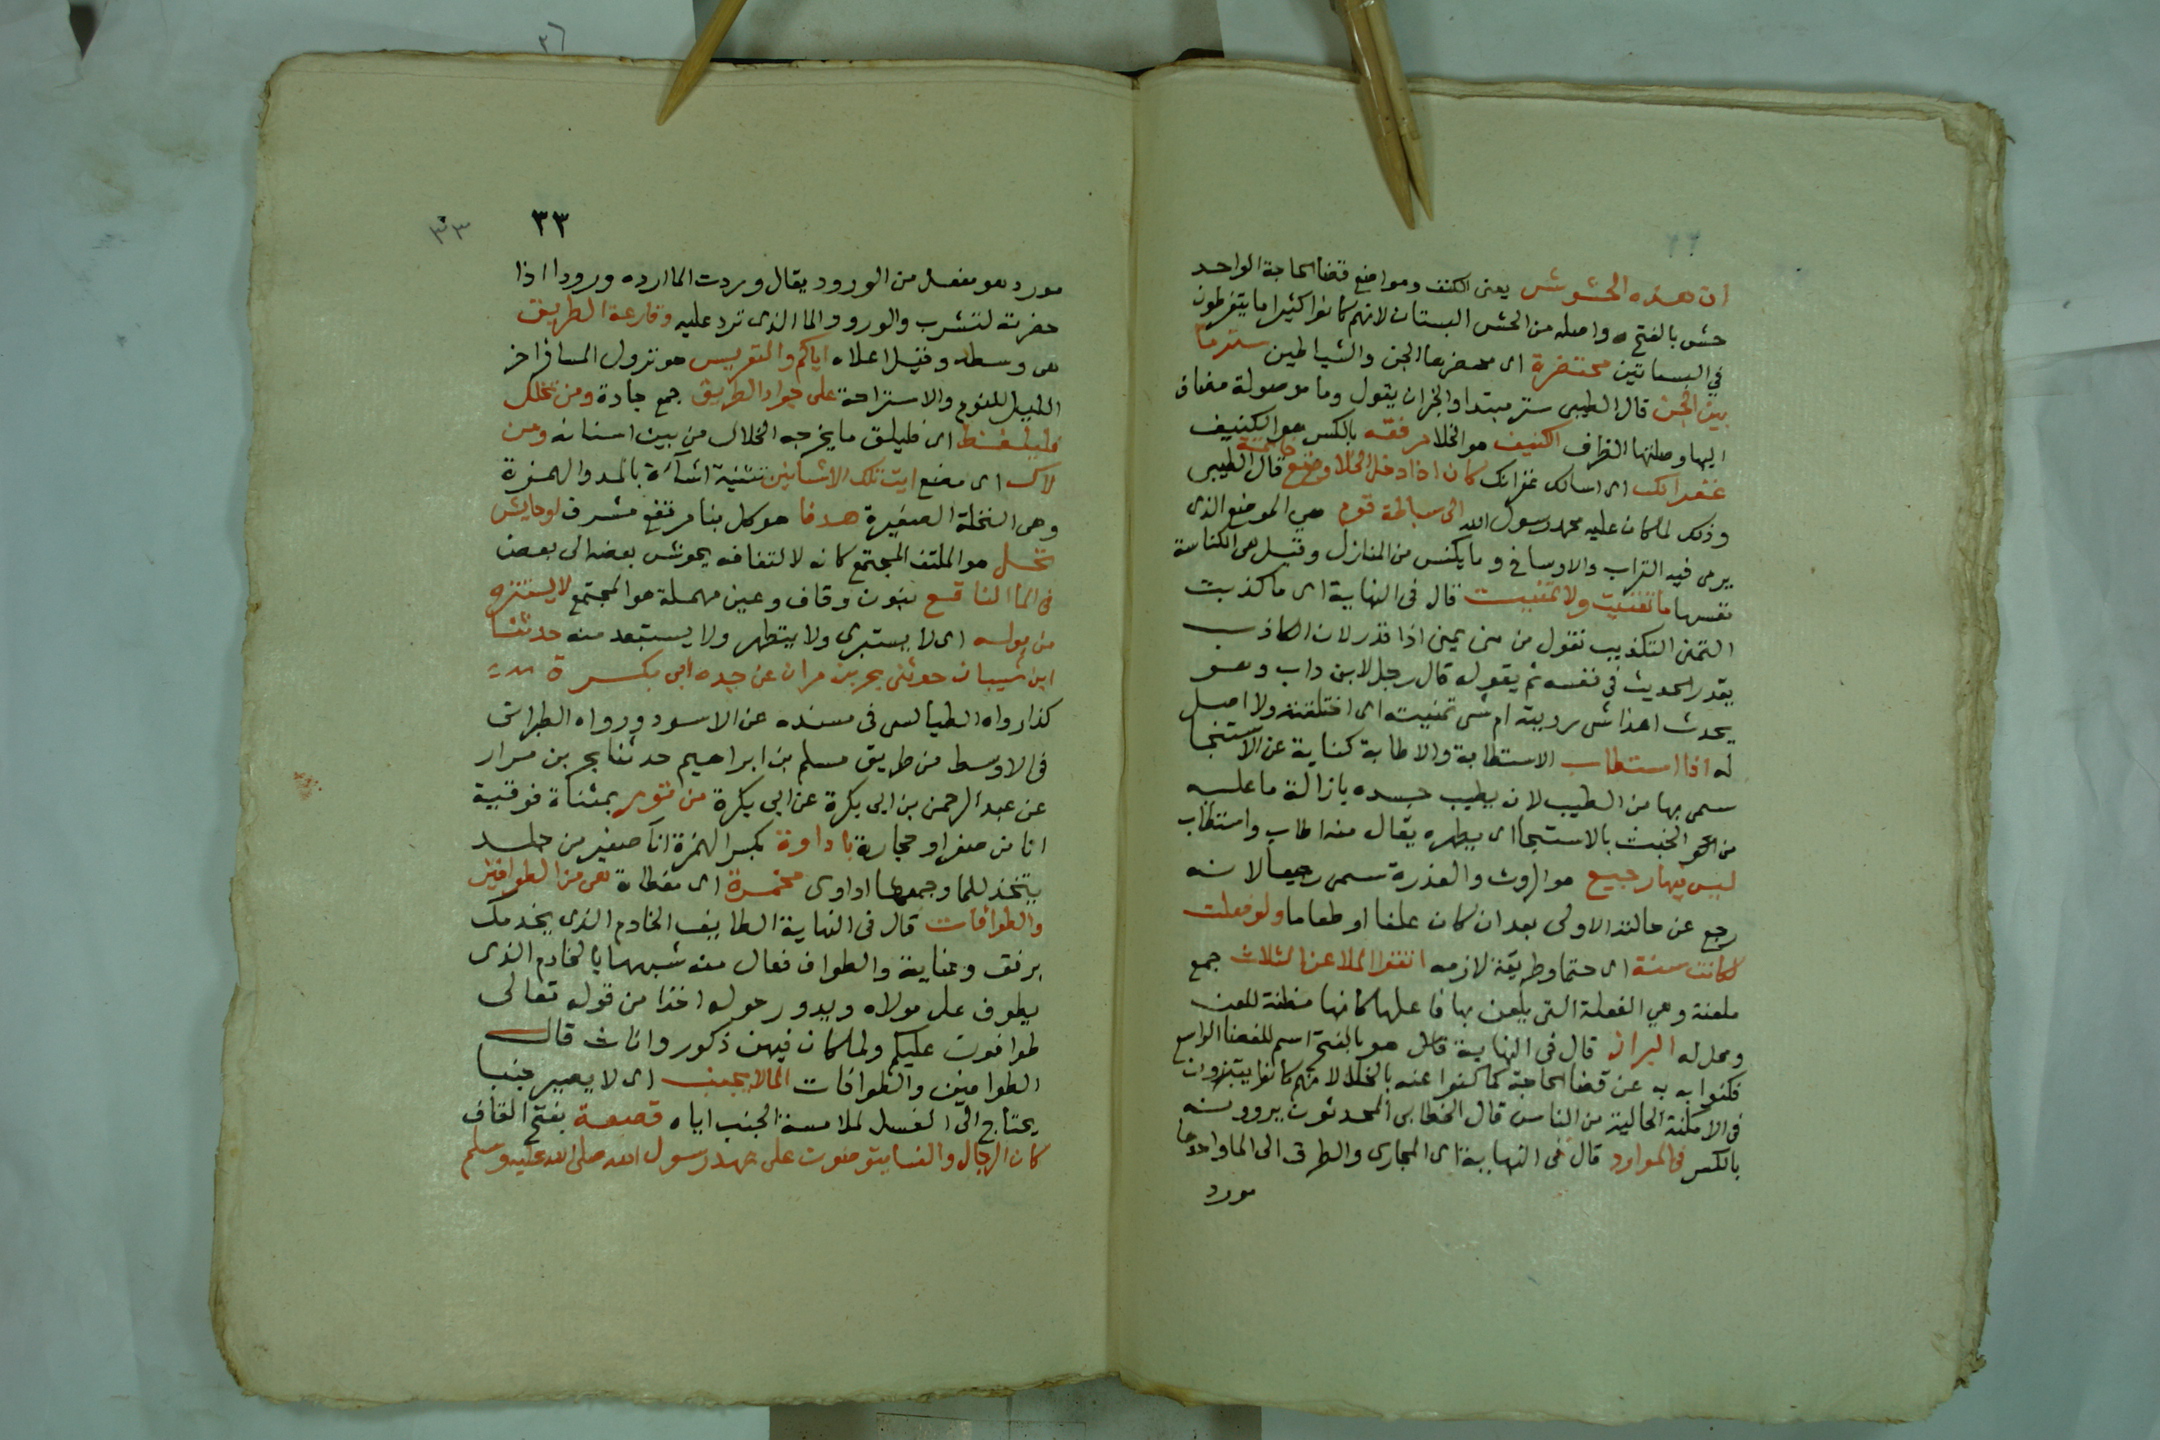 ان هذه الحشوش يعنى الكنف ومواضع قضا الحاجة الواحد
حش بالفتح واصله من الحش البستان لانهم كانوا كثيرا ما يتغوطون
في البساتين محتضرة اى يحضرها الجن والشياطين ستر ما
بين الجن قال الطيبى ستر مبتدا والخبر ان يقول وما موصولة مضاف
اليها وصلتها الظرف الكنيف هو الخلا مرفقه بالكسر هو الكنيف
غفرانك اى اسالك غفرانك كان اذا دخل الخلا وضع خاتمه قال الطيبى
وذلك لما كان عليه محمد رسول الله الى سباطة قوم هي الموضع الذى
يرمى فيه التراب والاوساخ وما يكنس من المنازل وقيل هى الكناسة
نفسها ما تغنيت ولا تمنيت قال فى النهاية اى ما كذبت
التمنى التكذيب تفعل من منى يمنى اذا قدر لان الكاذب
يقدر الحديث في نفسه ثم يقوله قال رجل لابن داب وهو
يحدث اهذا شى رويته ام شى تمنيته اى اختلقته ولا اصل
له اذا استطاب الاستطابة والاطابة كناية عن الاستنجا
سمى بها من الطيب لانه يطيب جسده بازالة ما عليه
من الخبث بالاستنجا اى يطهره يقال منه اطاب واستطاب
ليس فيها رجيع هو الروث والعذرة سمى رجيعا لانه
رجع عن حالته الاولى بعد ان كان علفا او طعاما ولو فعلت
لكانت سنة اى حتما وطريقة لازمه اتقوا الملاعن الثلاث جمع
ملعنة وهي الفعلة التى يلعن بها فاعلها كانها مظنة للعن
ومحل له البراز قال فى النهاية هو بالفتح اسم للفضا الواسع
فكنوا به عن قضا الحاجة كما كنوا عنه بالخلا لانهم كانوا يتبرزون
فى الامكنة الخالية من الناس قال الخطابى المحدثون يروونه
بالكسر فى الموارد قال فى النهاية اى المجارى والطرق الى الما واحدها
مورد
٣٣
٣٣
مورد هو مفعل من الورود يقال وردت الما ارده ورودا اذا
حضرته لتشرب والورود الما الذى ترد عليه وقارعة الطريق
هى وسطه وقيل اعلاه اياكم والتعريس هو نزول المسافر اخر
الليل للنوم والاستراحة على جواد الطريق جمع جادة ومن تخلل
فليلفظ اى فليلق ما يخرجه الخلال من بين اسنانه ومن
لاك اى مضغ ايت تلك الاشائين تثنية اشآءة بالمد والهمزة
وهى النخلة الصغيرة هدفا هو كل بنا مرتفع مشرف او حايش
نخل هو الملتف المجتمع كانه لالتفافه يحوش بعضه الى بعض
فى الما الناقع بنون وقاف وعين مهملة هو المجتمع لا يستنزه
من بوله اى لا يستبرى ولا يتطهر ولا يستبعد منه حدثنا
ابن شيبان حدثنى بحر بن مرار عن جده ابى بكرة
كذا رواه الطيالسى فى مسنده عن الاسود ورواه الطبرانى
فى الاوسط من طريق مسلم بن ابراهيم حدثنا بحر بن مرار
عن عبد الرحمن بن ابى بكرة عن ابى بكرة من تور بمثناة فوقية
انا من صفر او حجارة باداوة بكسر الهمزة انآ صغير من جلد
يتخذ للما وجمعها اداوى مخمرة اى مغطاة هى من الطوافين
والطوافات قال فى النهاية الطايف الخادم الذى يخدمك
برفق وعناية والطواف فعال منه شبهها بالخادم الذى
يطوف على مولاه ويدور حوله اخذا من قوله تعالى
طوافون عليكم ولما كان فيهن ذكور واناث قال
الطوافين والطوافات الما لا يجنب اى لا يصير جنبا
يحتاج الى الغسل لملامسة الجنب اياه قصعة بفتح القاف
كان الرجال والنسا يتوضون على عهد رسول الله صلى الله عليه وسلم